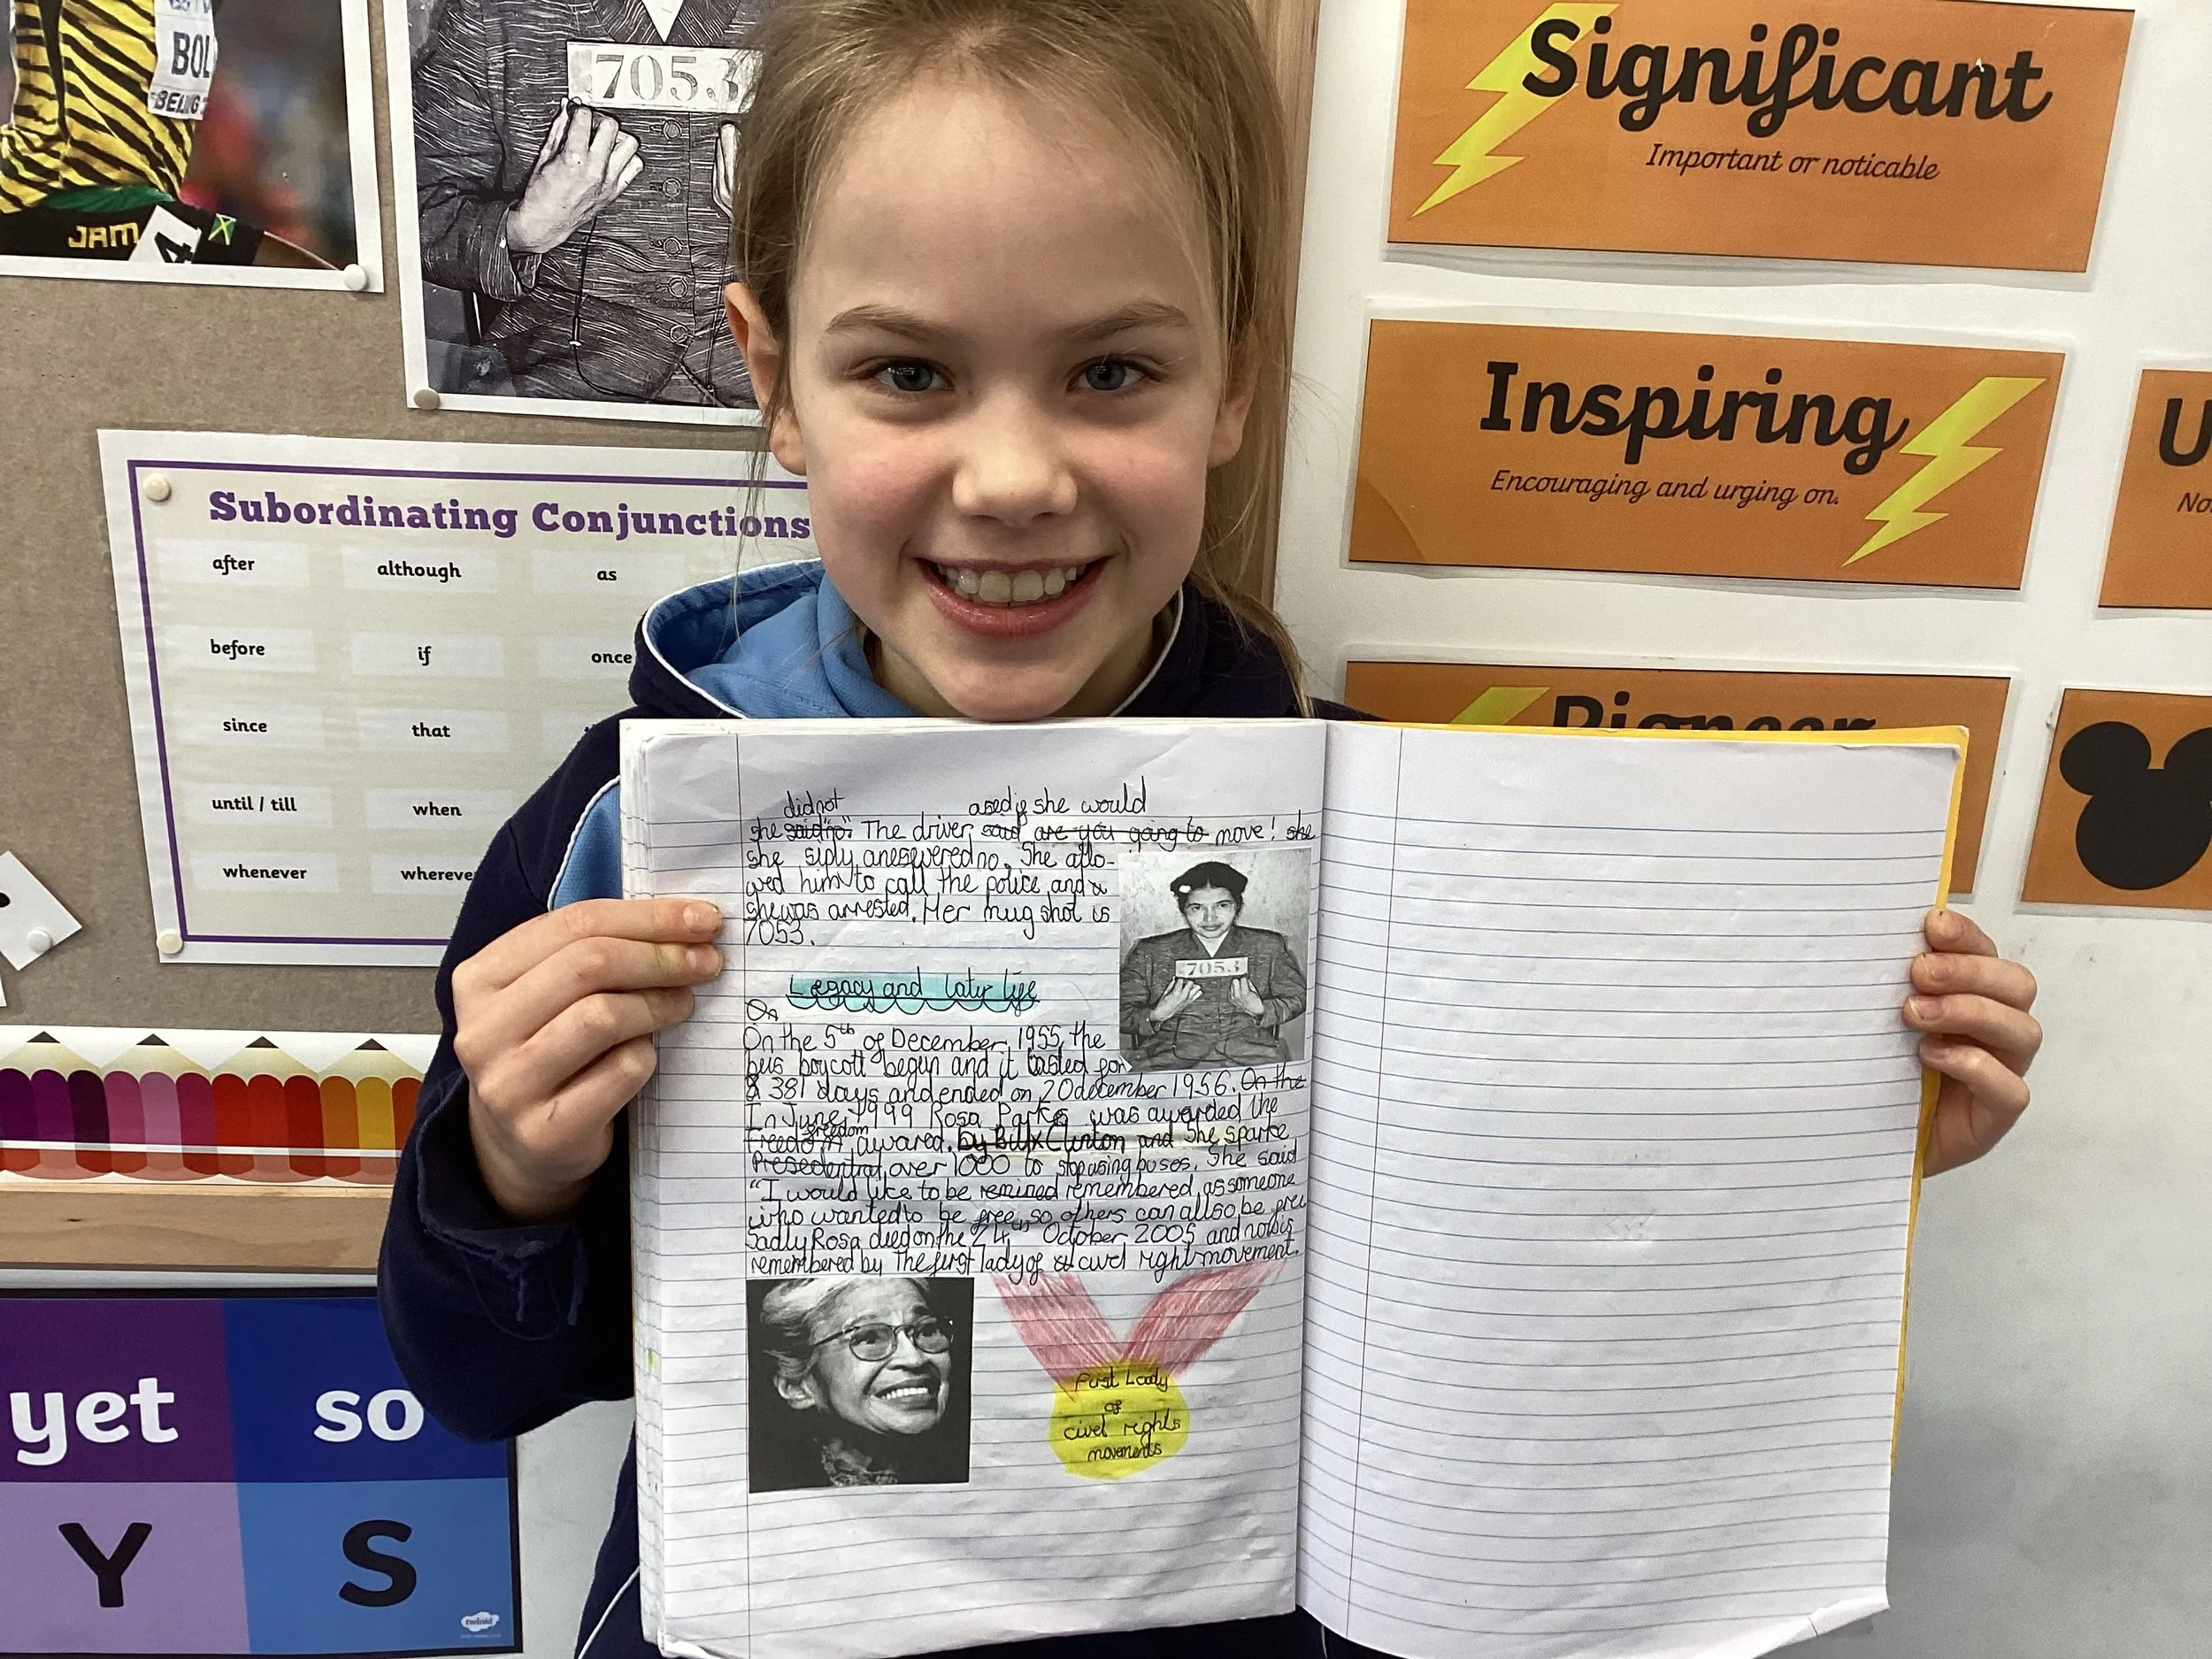 BOL
BEIJING
JAM
4
7053
Significant
Important or noticable
Inspiring
Encouraging and urging on.
U
No
Pioneer
Subordinating Conjunctions
after although as
before if once
since that
until / till when
whenever whereve
yet so
Y S
twinkl
did not ased if she would
she said "no". The driver said are you going to move! she
she siply aneswered no. She allo-
wed him to call the police and
she was arrested. Her mug shot is
7053.
7053
Legacy and later life
On
On the 5th of December 1955, the
bus boycott begun and it lasted for
381 days and ended on 20 december 1956. On the
In June, 1999 Rosa Parks was awarded the
freedom
freedom awared. by Bill Clinton and She sparke
Presedentral over 1000 to stop using buses. She said
"I would like to be remined remembered as someone
who wanted to be free so others can allso be free
Sadly Rosa died on the 24th October 2005 and now is
remembered by The first lady of civel right movement.
First Lady
of
civel rights
movements